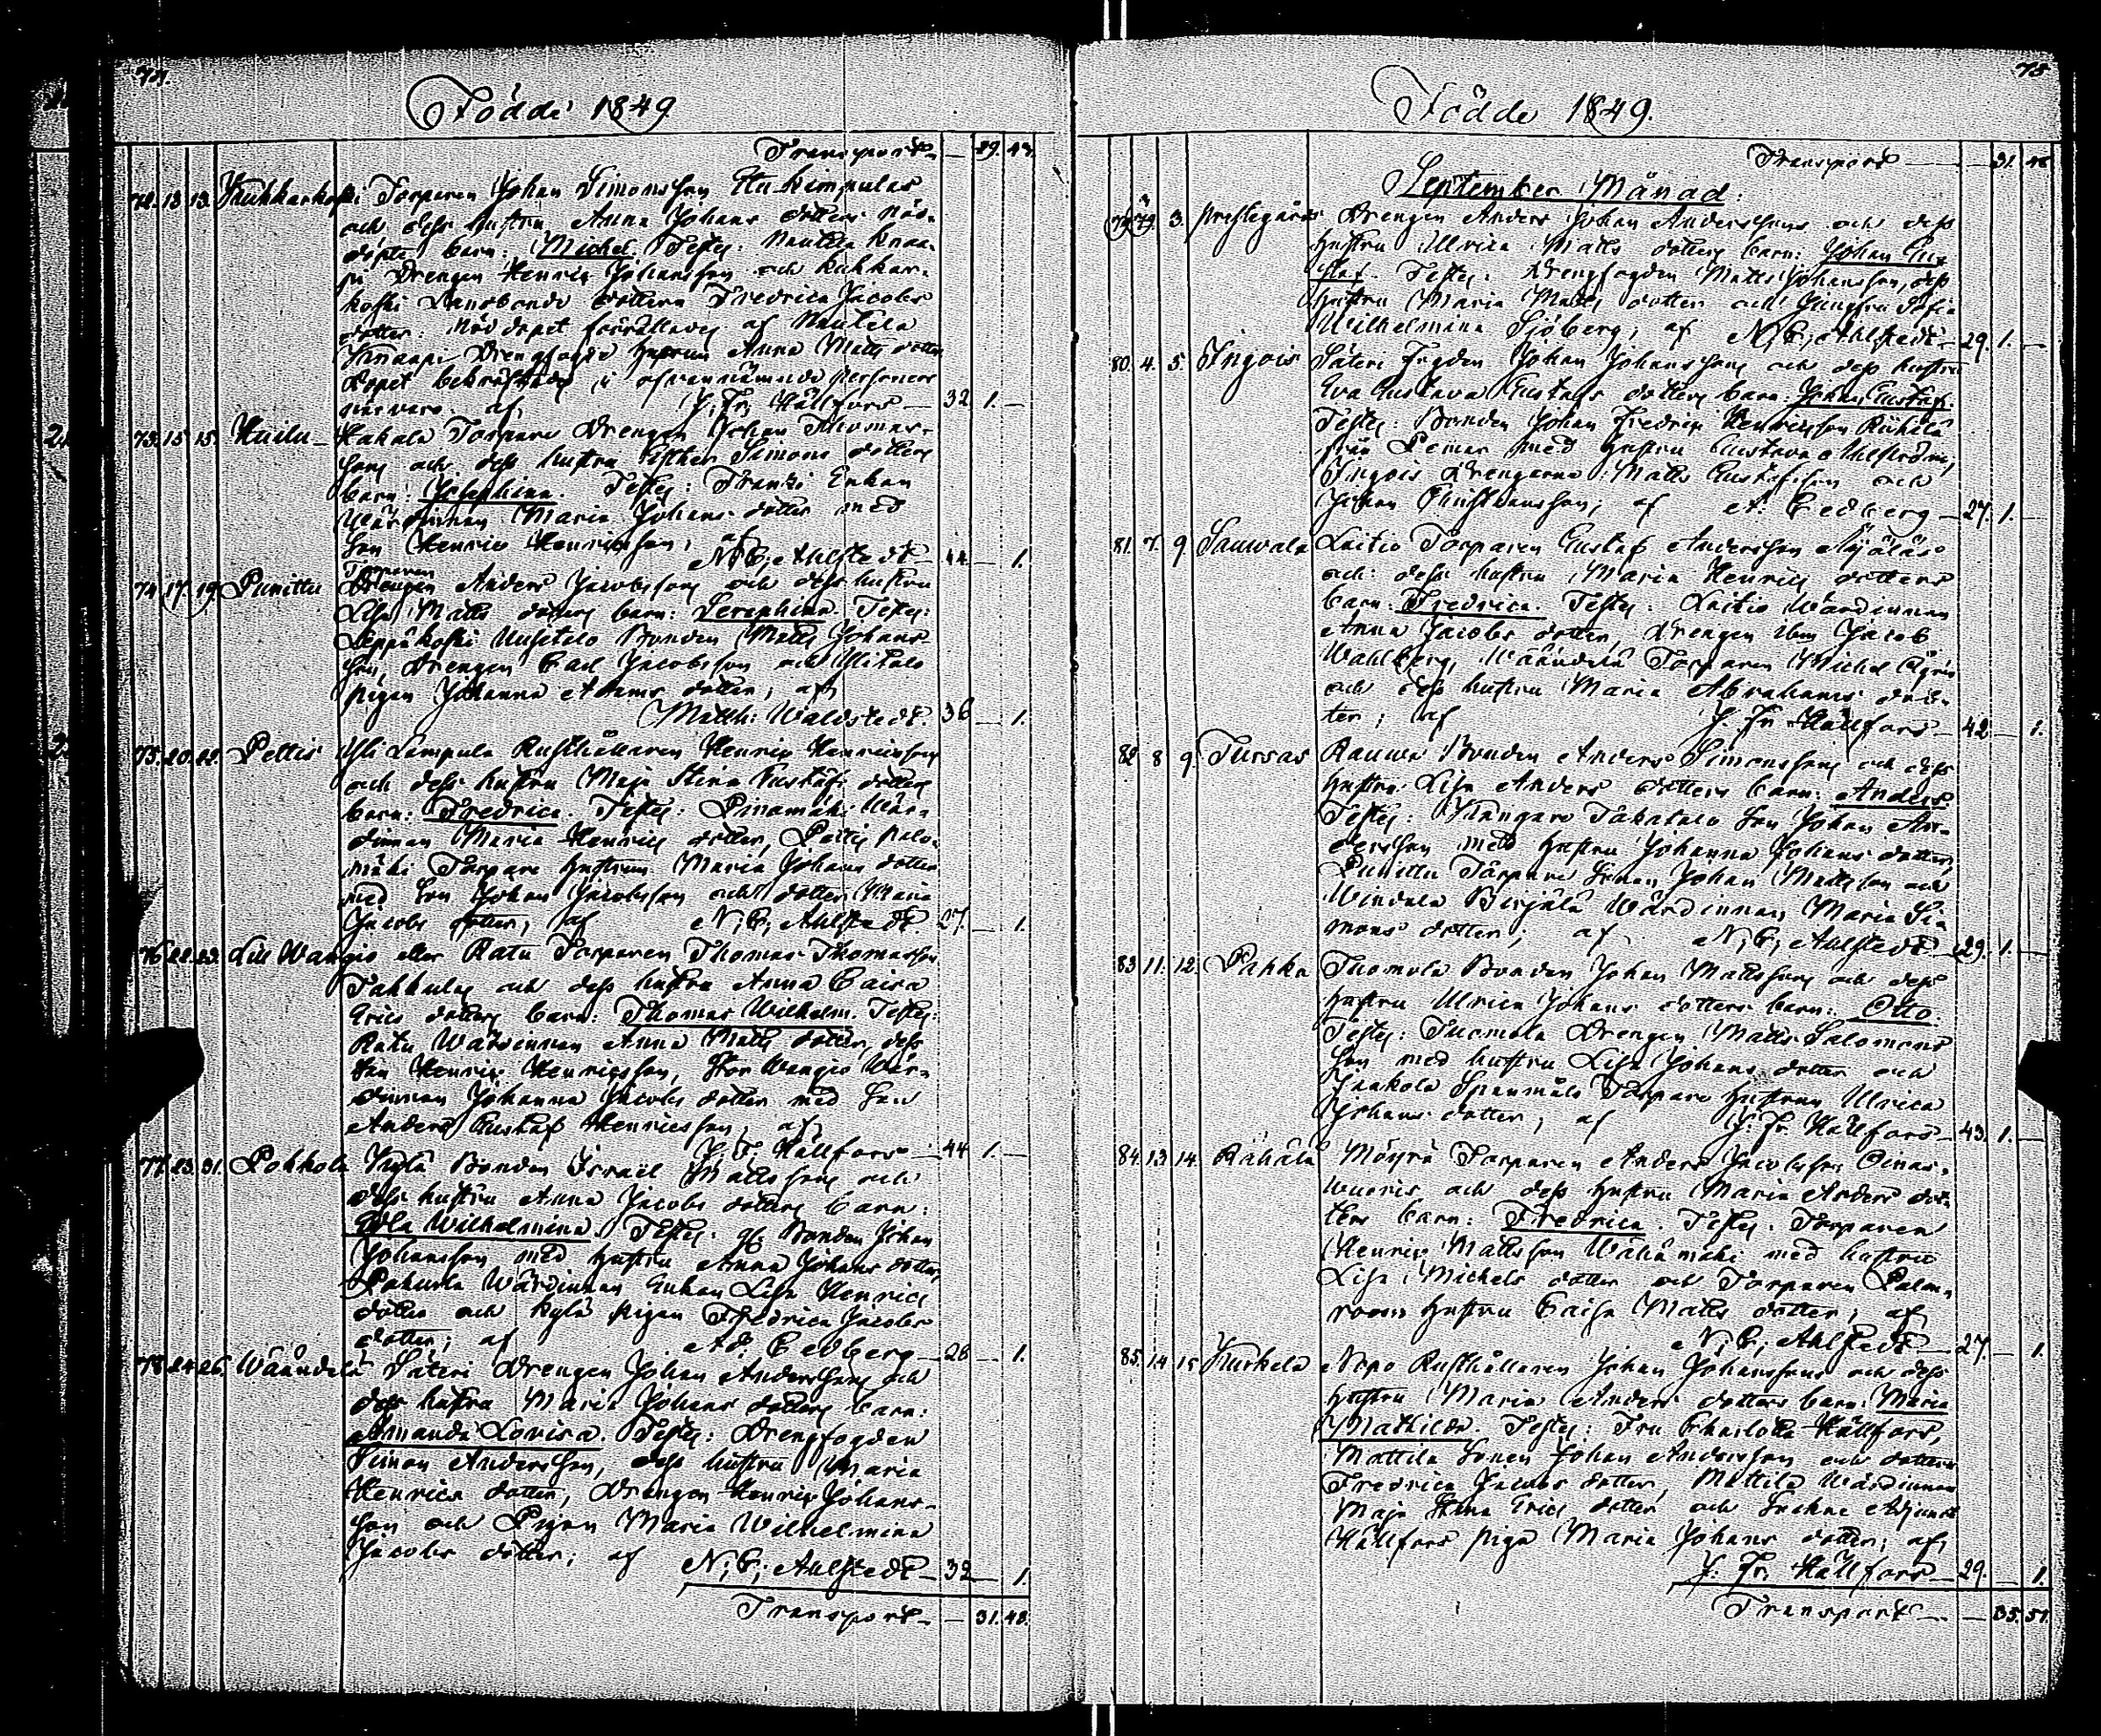 74.
Födde 1849
Transport — 29. 43.
72. 13. 13. Kuhkarkoski Torparen Johan Simonsson Humpulas
och dess hustru Anna Johans dotters nöd-
döpte barn: Michel. Testes: Nautela Knaa-
pi Drengen Henric Johansson och Kuhkar-
koski Landbonde dottern Fredrica Jacobs
dotter. Nöddopet förrättades af Nautela
Knaapi Drengfogde hustrun Anna Matts dotter
Dopet bekräftades i ofvannämnde personers
närvaro af J. Fr. Hällfors — 32 1. —
73. 15. 15. Huilu — Hakala Torpare Drengen Johan Thomas-
sons och dess hustru Esther Simons dotters
barn: Josephina. Testes: Franki Enkan
Wärdinnan Maria Johans dotter med
Son Henric Henricsson, af
N. C. Ahlstedt — 44 — 1.
74 17. 19. Punittu Torparen
Drengen Anders Jacobssons och dess hustru
Lisa Matts dotters barn: Seraphina. Testes:
Leppäkoski Uusitalo Bonden Matts Johans
son, Drengen Carl Jacobsson och Ylitalo
pigan Johanna Adams dotter, af
Matth: Waldstedt. 36 — 1.
75. 20. 22. Pettis Yli Lampula Rusthållaren Henric Henricssons
och dess hustru Maja Stina Gustafs dotters
barn: Fredrica. Testes: Linamäki Wär-
dinnan Maria Henrics dotter, Pettis Palo-
mäki Torpare hustrun Maria Johans dotter
med Son Johan Jacobsson och dotter Maria
Jacobs dotter, af N. C. Ahlstedt. 27. — 1.
76 22. 23. Lill Wangio eller Ratu Torparen Thomas Thomasson
Takkulas och dess hustru Anna Caisa
Erics dotters barn: Thomas Wilhelm. Testes:
Ratu Wärdinnan Anna Matts dotter, dess
Son Henric Henricsson, Stor Wangio Wär-
dinnan Johanna Jacobs dotter med Son
Anders Gustaf Henricsson, af
J. F. Hällfors — 44 1. —
77. 23. 31. Pohkola Kylä Bonden Israel Mattssons och
dess hustru Anna Jacobs dotters barn:
Edla Wilhelmina. Testes: gl. Bonden Johan
Johansson med hustru Anna Johans dotter,
Pahurla Wärdinnan Enkan Lisa Henrics
dotter och Kylä pigan Fredrica Jacobs
dotter; af Ad. Cedberg — 26 — 1.
78. 24. 26. Wäändelä Säteri Drengen Johan Anderssons och
dess hustru Maria Johans dotters barn:
Amanda Lovisa. Testes: Drengfogden
Simon Andersson, dess hustru Maria
Henrics dotter, Drengen Henric Johans-
son och Pigan Maria Wilhelmina
Jacobs dotter; af N. C. Ahlstedt — 32 — 1.
Transport — — 31. 48.
75
Födde 1849.
Transport — — 31. 48
September Månad.
79. 3. Prestegårds Drengen Anders Johan Anderssons och dess
hustru Ulrica Matts dotters barn: Johan Gu-
staf. Testes: Drengfogden Matts Johansson, dess
hustru Maria Matts dotter och Jungfru Sofia
Wilhelmina Sjöberg; af N. C. Ahlstedt — 29. 1. —
80. 4. 5. Ingois Säteri Fogden Johan Johanssons och dess hustru
Eva Gustava Gustafs dotters barn: Johan Gustaf.
Testes: Bonden Johan Fredric Henricsson Riihelä
från Pemar med hustru Gustava Ahlström,
Ingois Drengarna: Matts Gustafsson och
Johan Christiansson; af A. Cedberg — 27. 1. —
81. 7. 9 Sauwala Laitio Torparen Gustaf Andersson Äijäläs
och dess hustru Maria Henrics dotters
barn: Fredrica. Testes: Laitio Wärdinnan
Anna Jacobs dotter, Drengen ibm Jacob
Wahlberg, Wäändelä Torparen Michel
och dess hustru Maria Abrahams dot-
ter; af J. Fr. Hällfors — 42 — 1.
82 8 9. Turras Rauwa Bonden Anders Simonssons och dess
hustru Lisa Anders dotters barn: Anders.
Testes: Kangare Takatalo Son Johan An-
dersson med hustru Johanna Johans dotter,
Punittu Torpare Sonen Johan Mattsson och
Windala Pirjälä Wärdinnan Maria Si-
mons dotter; af N. C. Ahlstedt — 29. 1. —
83 11. 12. Pahka Tuomola Bonden Johan Mattssons och dess
hustru Ulrica Johans dotters barn: Otto.
Testes: Tuomola Drengen Matts Salomons
son med hustru Lisa Johans dotter och
Jaakola Torpare hustrun Ulrica
Johans dotter; af J. Fr. Hällfors — 43. 1. —
84. 13 14. Rähälä Möyrä Torparen Anders Jacobsson Oinas-
wuoris och dess hustru Maria Anders dot-
ters barn: Fredrica. Testes: Torparen
Henric Mattsson Wähämäki med hustru
Lisa Michels dotter och Torparen Palm-
roos hustru Caisa Matts dotter; af
N. C. Ahlstedt — 27. — 1.
85. 14 15 Kurkela Nopo Rusthållaren Johan Johanssons och dess
hustru Maria Anders dotters barn: Maria
Mathilda. Testes: Fru Charlotta Hällfors,
Mattila Sonen Johan Andersson och dottern
Fredrica Jacobs dotter, Mattila Wärdinnan
Maja Stina Erics dotter och Sockne Adjunct
Hällfors piga Maria Johans dotter; af
J. Fr. Hällfors — 29. — 1.
Transport — — 35. 51.